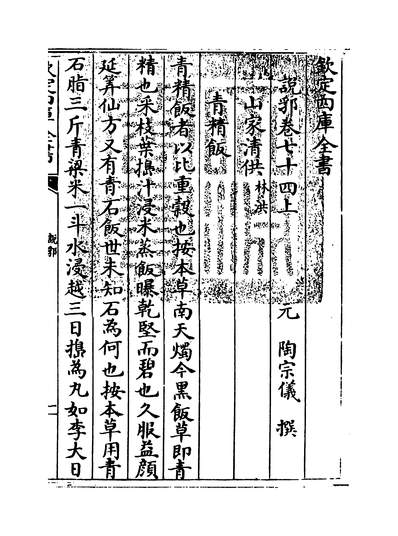 欽定四庫全書
說郛卷七十四上 元 陶宗儀 撰
山家清供 林洪
青精飯
青精飯者以比重穀也按本草南天燭今黑飯草即青
精也采枝葉搗汁浸米蒸飯曝乾堅而碧也久服益顏
延筭仙方又有青石飯世未知石為何也按本草用青
石脂三斤青粱米一斗水浸越三日搗為丸如李大日